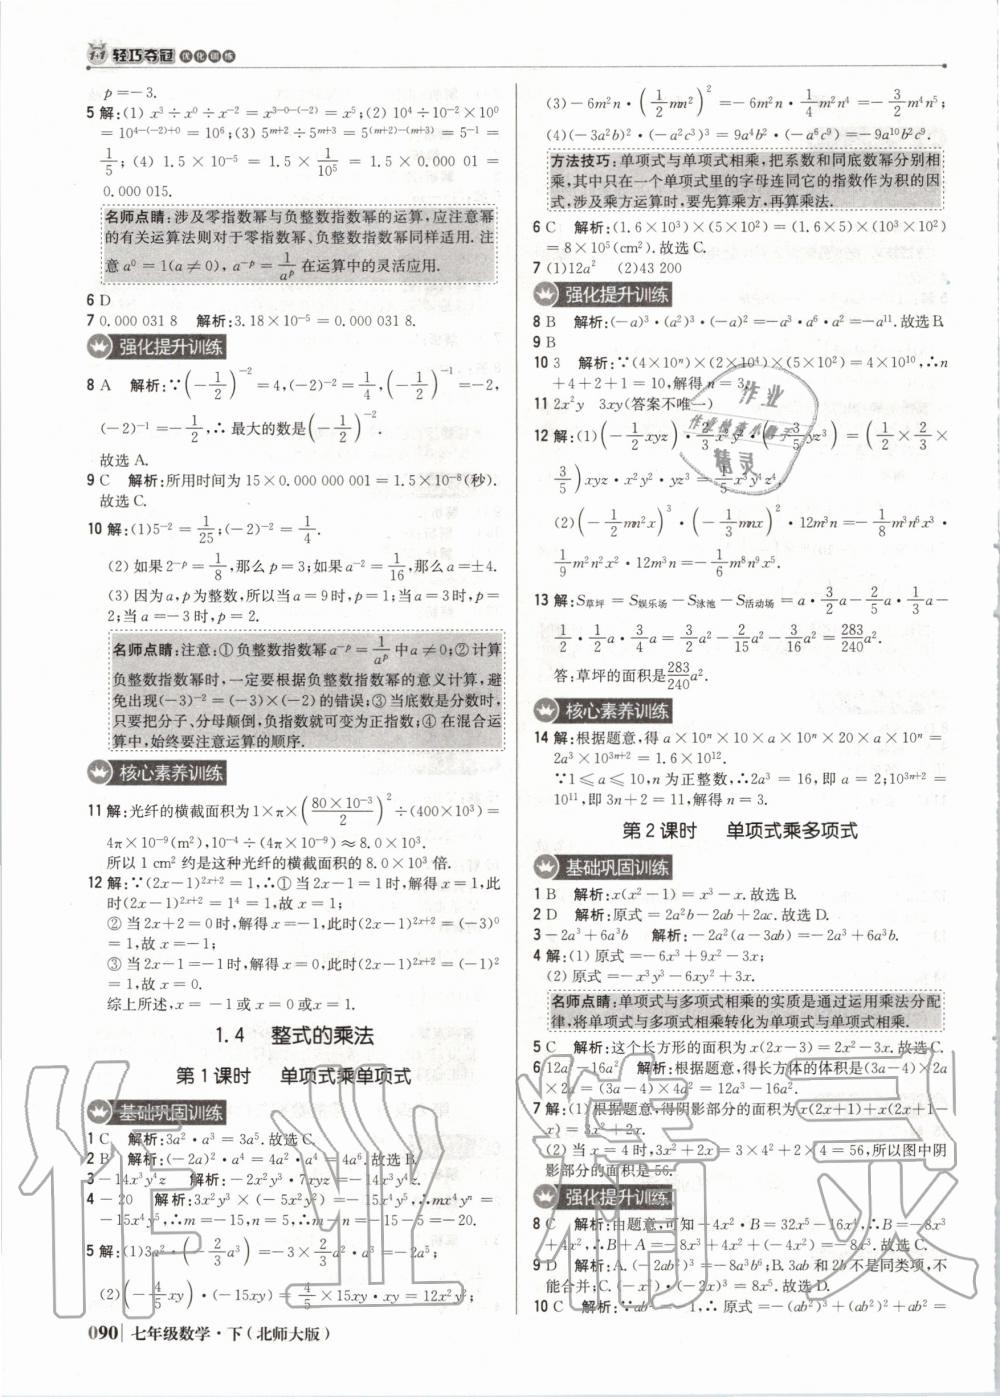 1+1 轻巧夺冠 优化训练
p=-3.
5 解:(1) x³÷x⁰÷x⁻²=x³⁻⁰⁻⁽⁻²⁾=x⁵;(2) 10⁴÷10⁻²×10⁰
=10⁴⁻⁽⁻²⁾⁺⁰=10⁶;(3) 5ᵐ⁺²÷5ᵐ⁺³=5⁽ᵐ⁺²⁾⁻⁽ᵐ⁺³⁾=5⁻¹=
1/5;(4) 1.5×10⁻⁵=1.5×1/10⁵=1.5×0.000 01=
0.000 015.
名师点睛:涉及零指数幂与负整数指数幂的运算,应注意幂
的有关运算法则对于零指数幂、负整数指数幂同样适用.注
意a⁰=1(a≠0),a⁻ᵖ=1/aᵖ在运算中的灵活应用.
6 D
7 0.000 031 8 解析:3.18×10⁻⁵=0.000 031 8.
强化提升训练
8 A 解析:∵(-1/2)⁻²=4,(-2)⁻²=1/4,(-1/2)⁻¹=-2,
(-2)⁻¹=-1/2,∴最大的数是(-1/2)⁻²
故选A.
9 C 解析:所用时间为15×0.000 000 001=1.5×10⁻⁸(秒).
故选C.
10 解:(1)5⁻²=1/25;(-2)⁻²=1/4.
(2)如果2⁻ᵖ=1/8,那么p=3;如果a⁻²=1/16,那么a=±4.
(3)因为a,p为整数,所以当a=9时,p=1;当a=3时,p=
2;当a=-3时,p=2.
名师点睛:注意:①负整数指数幂a⁻ᵖ=1/aᵖ中a≠0;②计算
负整数指数幂时,一定要根据负整数指数幂的意义计算,避
免出现(-3)⁻²=(-3)×(-2)的错误;③当底数是分数时,
只要把分子、分母颠倒,负指数就可变为正指数;④在混合运
算中,始终要注意运算的顺序.
核心素养训练
11 解:光纤的横截面积为1×π×(80×10⁻³/2)²÷(400×10³)=
4π×10⁻⁹(m²),10⁻⁴÷(4π×10⁻⁹)≈8.0×10³.
所以1 cm²约是这种光纤的横截面积的8.0×10³倍.
12 解:∵(2x-1)²ˣ⁺²=1,∴①当2x-1=1时,解得x=1,此
时(2x-1)²ˣ⁺²=1⁴=1,故x=1;
②当2x+2=0时,解得x=-1,此时(2x-1)²ˣ⁺²=(-3)⁰
=1,故x=-1;
③当2x-1=-1时,解得x=0,此时(2x-1)²ˣ⁺²=(-1)²
=1,故x=0.
综上所述,x=-1或x=0或x=1.
1.4 整式的乘法
第1课时 单项式乘单项式
基础巩固训练
1 C 解析:3a²·a³=3a⁵.故选C.
2 B 解析:(-2a)²·a⁴=4a²·a⁴=4a⁶.故选B.
3 -14x³y⁴z 解析:-2x²y³·7xyz=-14x³y⁴z.
4 -20 解析:3x²y³×(-5x²y²)=-15x⁴y⁵,∴mx⁴yⁿ=
-15x⁴y⁵,∴m=-15,n=5,∴m-n=-15-5=-20.
5 解:(1)3a²·(-2/3a³)=-3×2/3a²·a³=-2a⁵;
(2)(-4/5xy)·(-15xy)=4/5×15xy·xy=12x²y²;
(3)-6m²n·(1/2mn²)²=-6m²n·1/4m²n⁴=-3/2m⁴n⁵;
(4)(-3a²b)²·(-a²c³)³=9a⁴b²·(-a⁶c⁹)=-9a¹⁰b²c⁹.
方法技巧:单项式与单项式相乘,把系数和同底数幂分别相
乘,其中只在一个单项式里的字母连同它的指数作为积的因
式,涉及乘方运算时,要先算乘方,再算乘法.
6 C 解析:(1.6×10³)×(5×10²)=(1.6×5)×(10³×10²)
=8×10⁵(cm²).故选C.
7 (1)12a² (2)43 200
强化提升训练
8 B 解析:(-a)³·(a²)³·(-a)²=-a³·a⁶·a²=-a¹¹.故选B.
9 B
10 3 解析:∵(4×10ⁿ)×(2×10⁴)×(5×10²)=4×10¹⁰,∴n
+4+2+1=10,解得n=3.
11 2x²y 3xy(答案不唯一)
12 解:(1)(-1/2xyz)·2/3x²y²·(-3/5yz³)=(1/2×2/3×
3/5)xyz·x²y²·yz³=1/5x³y⁴z⁴.
(2)(-1/2mn²x)³·(-1/3mnx)²·12m³n=-1/8m³n⁶x³·
1/9m²n²x²·12m³n=-1/6m⁸n⁹x⁵.
13 解:S草坪=S娱乐场-S泳池-S活动场=a·3/2a-2/5a·1/3a-
1/2·1/2a·3/4a=3/2a²-2/15a²-3/16a²=283/240a².
答:草坪的面积是283/240a².
核心素养训练
14 解:根据题意,得a×10ⁿ×10×a×10ⁿ×20×a×10ⁿ=
2a³×10³ⁿ⁺²=1.6×10¹².
∵1≤a≤10,n为正整数,∴2a³=16,即a=2;10³ⁿ⁺²=
10¹¹,即3n+2=11,解得n=3.
第2课时 单项式乘多项式
基础巩固训练
1 B 解析:x(x²-1)=x³-x.故选B.
2 D 解析:原式=2a²b-2ab+2ac.故选D.
3 -2a³+6a³b 解析:-2a²(a-3ab)=-2a³+6a³b.
4 解:(1)原式=-6x³+9x²-3x;
(2)原式=-x³y³-6xy²+3x.
名师点睛:单项式与多项式相乘的实质是通过运用乘法分配
律,将单项式与多项式相乘转化为单项式与单项式相乘.
5 C 解析:这个长方形的面积为x(2x-3)=2x²-3x.故选C.
6 12a³-16a² 解析:根据题意,得长方体的体积为(3a-4)×2a
×2a=(3a-4)×4a²=12a³-16a².
7 解:(1)根据题意,得阴影部分的面积为x(2x+1)+x(2x+1-
x)=3x²+2x.
(2)当x=4时,3x²+2x=3×4²+2×4=56,所以图中阴
影部分的面积是56.
强化提升训练
8 C 解析:由题意,可知-4x²·B=32x⁵-16x⁴,∴B=-8x³
+4x²,∴B+A=-8x³+4x²+(-4x²)=-8x³.故选C.
9 D 解析:A.(-2ab²)³=-8a³b⁶;B.3ab和2b不是同类项,不
能合并;C.(-x²)·(-2x)³=8x⁵.故选D.
10 C 解析:∵ab²=-1,∴原式=-(ab²)³+(ab²)²+ab²=
090 七年级数学·下(北师大版)
作业
作业检查小助手
精灵
作业精灵